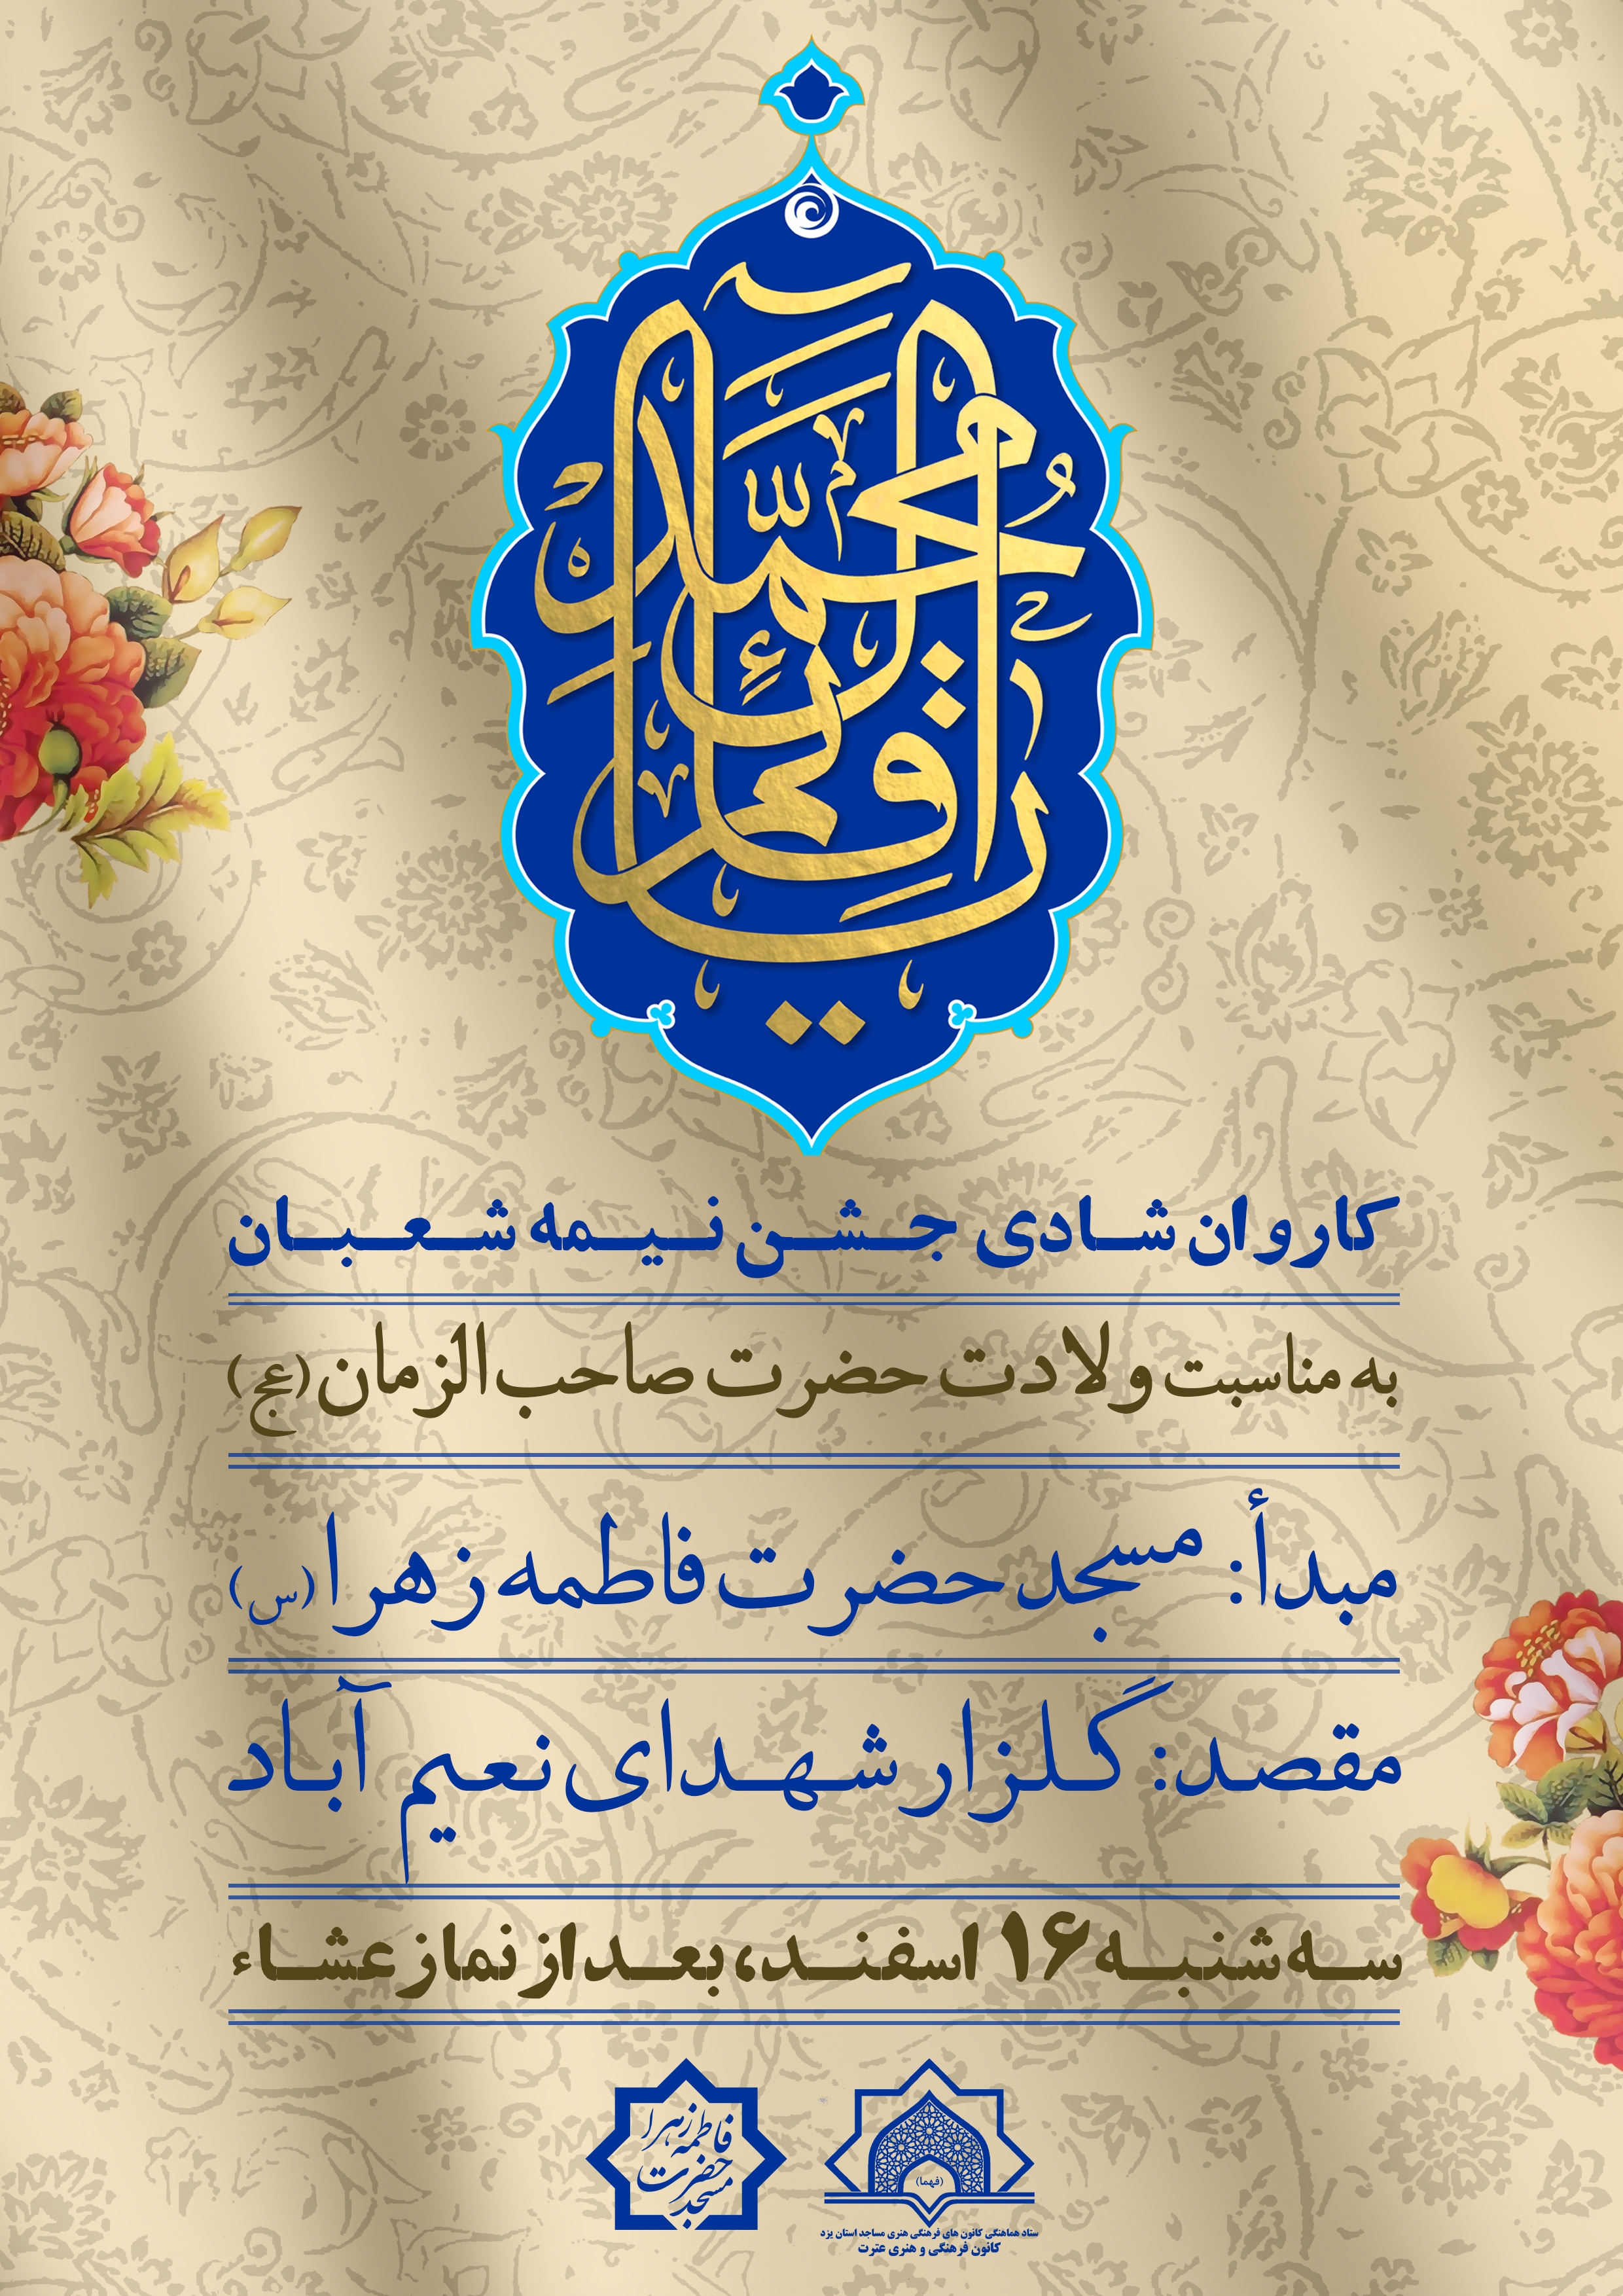 یا قائم آل محمد
کاروان شادی جشن نیمه شعبان
به مناسبت ولادت حضرت صاحب الزمان (عج)
مبدأ: مسجد حضرت فاطمه زهرا (س)
مقصد: گلزار شهدای نعیم آباد
سه شنبه ۱۶ اسفند، بعد از نماز عشاء
مسجد حضرت فاطمه زهرا
(فهما)
ستاد هماهنگی کانون های فرهنگی هنری مساجد استان یزد
کانون فرهنگی و هنری عترت